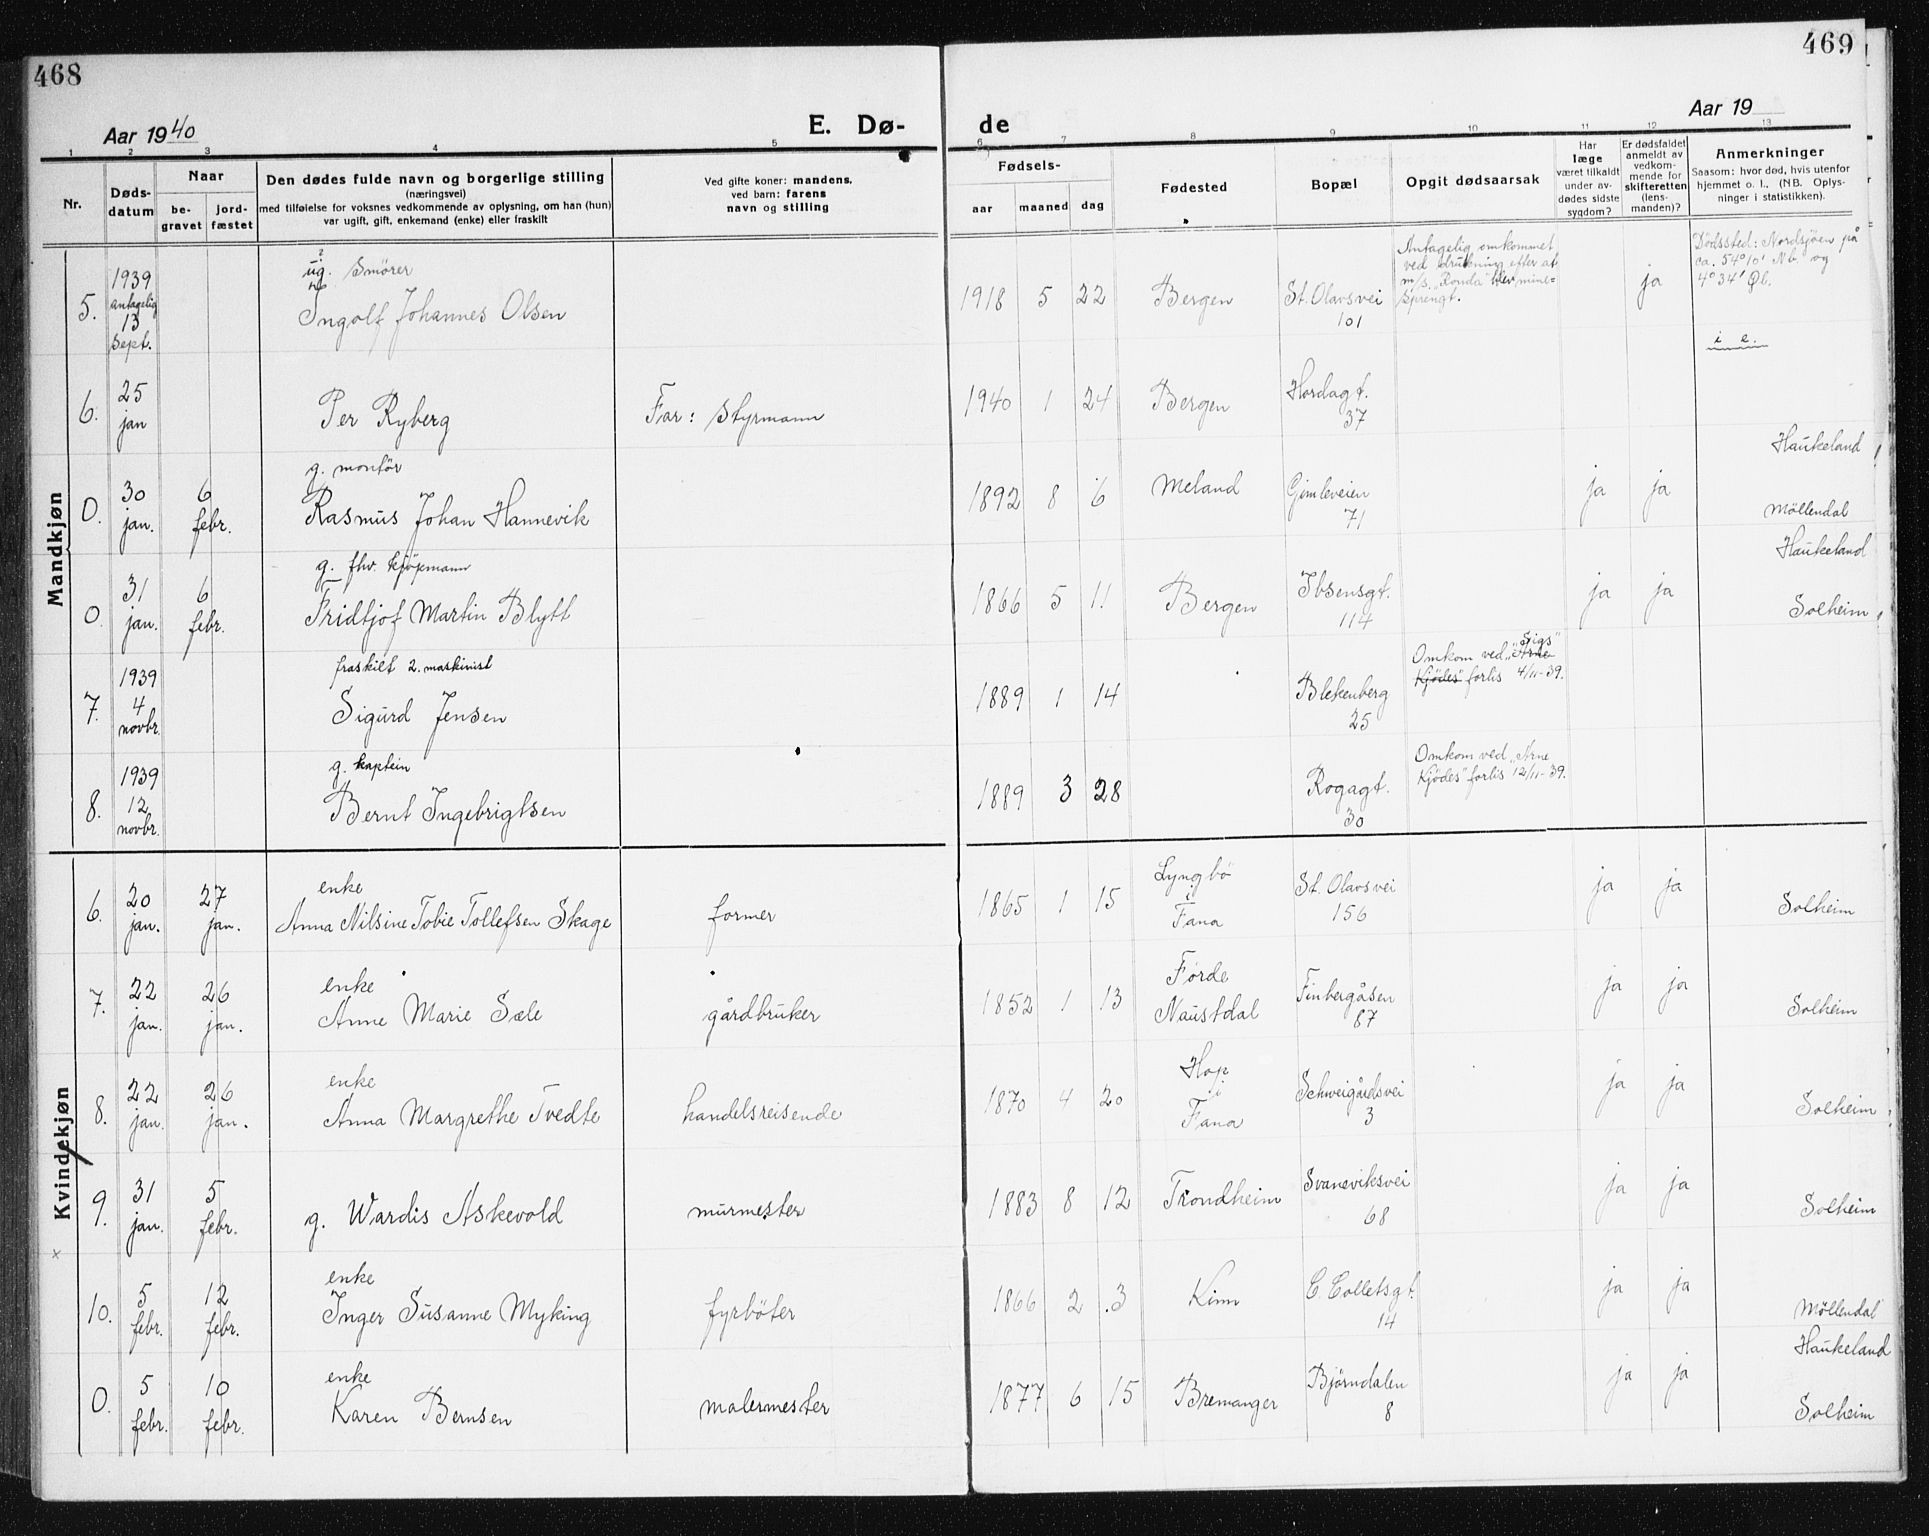 468
469
Aar 1940
E. Dø-
de
Aar 19
1 2 3 4 5 6 7 8 9 10 11 12 13
Nr.
Døds-
datum
Naar
be-
gravet
jord-
fæstet
Den dødes fulde navn og borgerlige stilling
(næringsvei)
med tilføielse for voksnes vedkommende av oplysning, om han (hun)
var ugift, gift, enkemand (enke) eller fraskilt
Ved gifte koner: mandens,
ved barn: farens
navn og stilling
Fødsels-
aar maaned dag
Fødested
Bopæl
Opgit dødsaarsak
Har
læge
været tilkaldt
under av-
dødes sidste
sygdom?
Er dødsfaldet
anmeldt av
vedkom-
mende for
skifteretten
(lens-
manden)?
Anmerkninger
Saasom: hvor død, hvis utenfor
hjemmet o. l., (NB. Oplys-
ninger i statistikken).
Mandkjøn
5.
1939
antagelig
13
sept.
ug. Smörer
Ingolf Johannes Olsen
1918 5 22 Bergen
St. Olavsvei
101
Antagelig omkommet
ved drukning efter at
m/s. "Ronda" blev mine-
sprengt.
ja
Dödssted: Nordsjöen på
ca. 54° 10' Nb. og
4° 34' Øl.
i e.
6.
25
jan
Per Ryberg
Far: Styrmann
1940 1 24 Bergen
Hordagt.
37
0.
30
jan.
6
febr.
g. montör
Rasmus Johan Hannevik
1892 8 6 Meland
Gimleveien
71
ja ja
Haukeland
Möllendal
0.
31
jan.
6
febr.
g. fhv. kjöpmann
Fridtjof Martin Blytt
1866 5 11 Bergen
Ibsensgt.
114
ja ja
Haukeland
Solheim
7.
1939
4
novbr.
fraskilt 2. maskinist
Sigurd Jensen
1889 1 14
Blekenberg
25
"Sigs"
Omkom ved "Arne
Kjödes" forlis 4/11-39.
8.
1939
12
novbr.
g. kaptein
Bernt Ingebrigtsen
1889 3 28
Rogagt.
30
Omkom ved "Arne
Kjödes" forlis 12/11-39.
Kvindekjøn
6.
20
jan.
27
jan.
enke
Anna Nilsine Tobie Tollefsen Skage
former
1865 1 15
Lyngbö
i
Fana
St. Olavsvei
156
ja ja
Solheim
7.
22
jan.
26
jan.
enke
Anne Marie Sæle
gårdbruker
1852 1 13
Førde
Naustdal
Finbergåsen
87
ja ja
Solheim
8.
22
jan.
26
jan.
enke
Anna Margrethe Tvedte
handelsreisende
1870 4 20
Hop
i
Fana
Schweigårdsvei
3
ja ja
Solheim
9.
31
jan.
5
febr.
g. Wardis Askevold
murmester
1883 8 12 Trondheim
Svaneviksvei
68
ja ja
Solheim
x
10.
5
febr.
12
febr.
enke
Inger Susanne Myking
fyrböter
1866 2 3 Kinn
C. Colletsgt.
14
ja ja
Möllendal
0.
5
febr.
10
febr.
enke
Karen Bernsen
malermester
1877 6 15 Bremanger
Björndalen
8
ja ja
Haukeland
Solheim